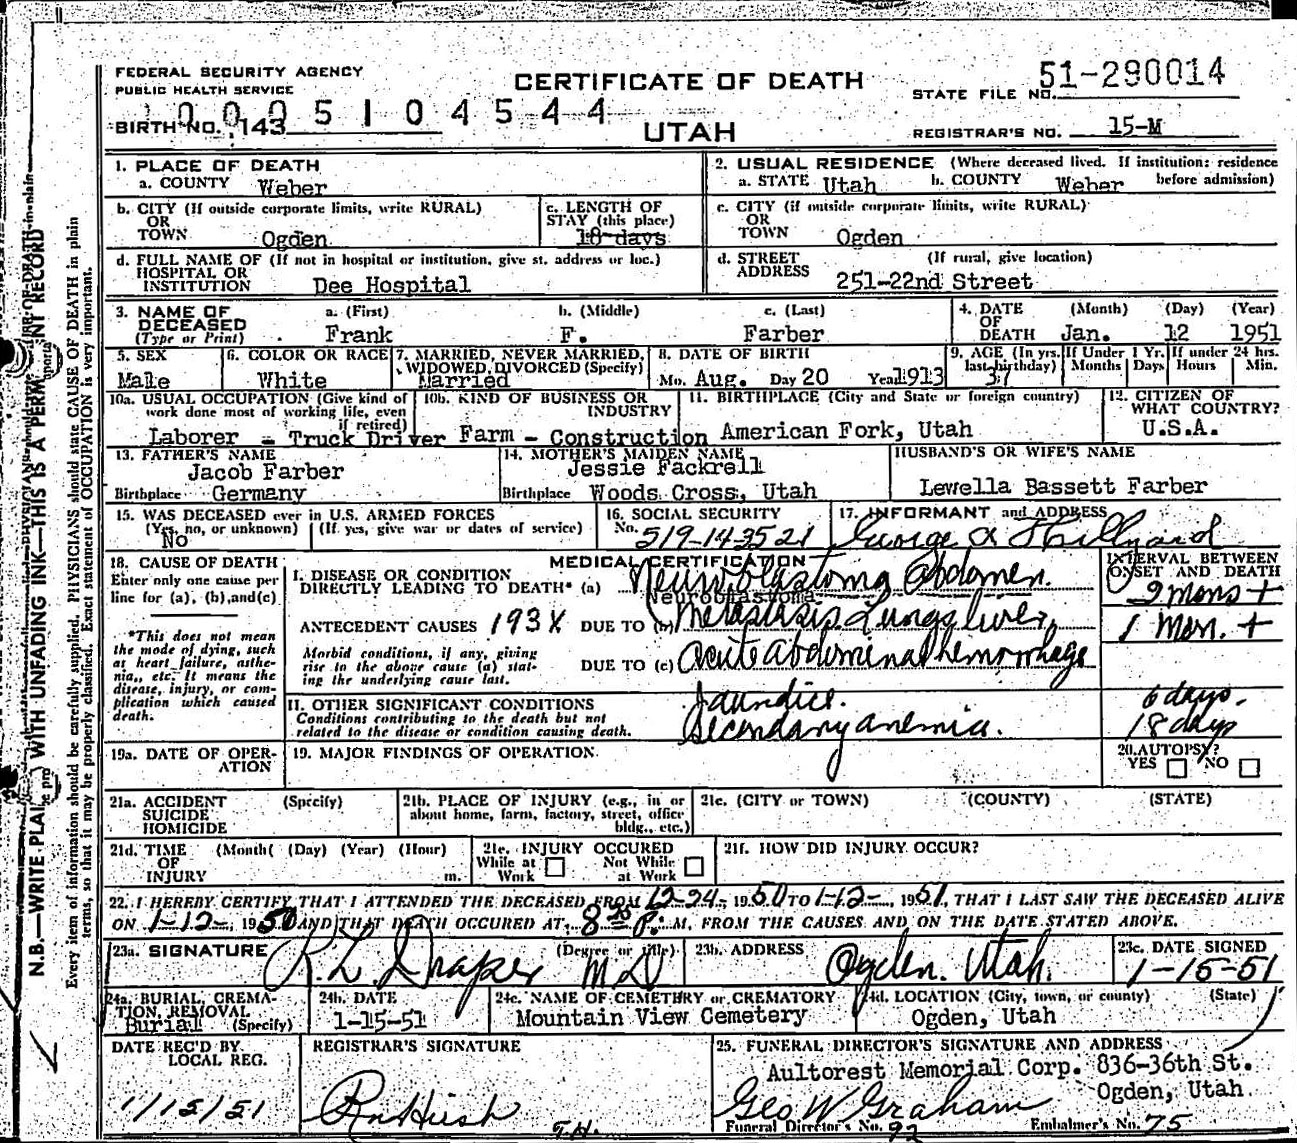 FEDERAL SECURITY AGENCY
PUBLIC HEALTH SERVICE
CERTIFICATE OF DEATH
UTAH
STATE FILE NO. 51-290014
0005104544
BIRTH NO. 143
REGISTRAR'S NO. 15-M
1. PLACE OF DEATH
a. COUNTY Weber
2. USUAL RESIDENCE (Where deceased lived. If institution: residence before admission)
a. STATE Utah b. COUNTY Weber
b. CITY (If outside corporate limits, write RURAL)
OR
TOWN Ogden
c. LENGTH OF
STAY (this place)
18 days
c. CITY (if outside corporate limits, write RURAL)
OR
TOWN Ogden
d. FULL NAME OF (If not in hospital or institution, give st. address or loc.)
HOSPITAL OR
INSTITUTION Dee Hospital
d. STREET (If rural, give location)
ADDRESS 251-22nd Street
3. NAME OF
DECEASED
(Type or Print)
a. (First) b. (Middle) c. (Last)
Frank F. Farber
4. DATE (Month) (Day) (Year)
OF
DEATH Jan. 12 1951
5. SEX
Male
6. COLOR OR RACE
White
7. MARRIED, NEVER MARRIED,
WIDOWED, DIVORCED (Specify)
Married
8. DATE OF BIRTH
Mo. Aug. Day 20 Year 1913
9. AGE (In yrs. last birthday)
37
If Under 1 Yr.
Months Days
If under 24 hrs.
Hours Min.
10a. USUAL OCCUPATION (Give kind of
work done most of working life, even
if retired)
Laborer - Truck Driver
10b. KIND OF BUSINESS OR
INDUSTRY
Farm - Construction
11. BIRTHPLACE (City and State or foreign country)
American Fork, Utah
12. CITIZEN OF
WHAT COUNTRY?
U.S.A.
13. FATHER'S NAME
Jacob Farber
Birthplace Germany
14. MOTHER'S MAIDEN NAME
Jessie Fackrell
Birthplace Woods Cross, Utah
HUSBAND'S OR WIFE'S NAME
Lewella Bassett Farber
15. WAS DECEASED ever in U.S. ARMED FORCES
(Yes, no, or unknown) (If yes, give war or dates of service)
No
16. SOCIAL SECURITY
No. 519-14-3521
17. INFORMANT and ADDRESS
George A Hillyard
18. CAUSE OF DEATH
Enter only one cause per
line for (a), (b), and (c)
*This does not mean
the mode of dying, such
as heart failure, asthe-
nia, etc. It means the
disease, injury, or com-
plication which caused
death.
MEDICAL CERTIFICATION
I. DISEASE OR CONDITION
DIRECTLY LEADING TO DEATH* (a) Neuroblastoma Abdomen.
Neuroblastoma
ANTECEDENT CAUSES 193X DUE TO (b) Metastasis Lungs liver,
Morbid conditions, if any, giving
rise to the above cause (a) stat-
ing the underlying cause last.
DUE TO (c) Acute Abdominal hemorrhage
II. OTHER SIGNIFICANT CONDITIONS
Conditions contributing to the death but not
related to the disease or condition causing death.
Jaundice.
Secondary anemia.
INTERVAL BETWEEN
ONSET AND DEATH
2 mons +
1 mon. +
6 days.
18 days
19a. DATE OF OPER-
ATION
19. MAJOR FINDINGS OF OPERATION
20. AUTOPSY?
YES NO
21a. ACCIDENT (Specify)
SUICIDE
HOMICIDE
21b. PLACE OF INJURY (e.g., in or
about home, farm, factory, street, office
bldg., etc.)
21c. (CITY or TOWN) (COUNTY) (STATE)
21d. TIME (Month) (Day) (Year) (Hour)
OF
INJURY m.
21e. INJURY OCCURED
While at Work Not While at Work
21f. HOW DID INJURY OCCUR?
22. I HEREBY CERTIFY THAT I ATTENDED THE DECEASED FROM 12-24-, 1950 TO 1-12-, 1951, THAT I LAST SAW THE DECEASED ALIVE
ON 1-12-, 1950 AND THAT DEATH OCCURED AT 8 P. M, FROM THE CAUSES AND ON THE DATE STATED ABOVE.
23a. SIGNATURE (Degree or title)
R L Draper MD
23b. ADDRESS
Ogden. Utah.
23c. DATE SIGNED
1-15-51
24a. BURIAL, CREMA-
TION, REMOVAL
Burial (Specify)
24b. DATE
1-15-51
24c. NAME OF CEMETERY or CREMATORY
Mountain View Cemetery
24d. LOCATION (City, town, or county) (State)
Ogden, Utah
DATE REC'D BY
LOCAL REG.
1/15/51
REGISTRAR'S SIGNATURE
25. FUNERAL DIRECTOR'S SIGNATURE AND ADDRESS
Aultorest Memorial Corp. 836-36th St.
Ogden, Utah
Geo W Graham
Funeral Director's No. 92 Embalmer's No. 75
N.B.—WRITE PLAINLY WITH UNFADING INK—THIS IS A PERMANENT RECORD
Every item of information should be carefully supplied. PHYSICIANS should state CAUSE OF DEATH in plain
terms, so that it may be properly classified. Exact statement of OCCUPATION is very important.